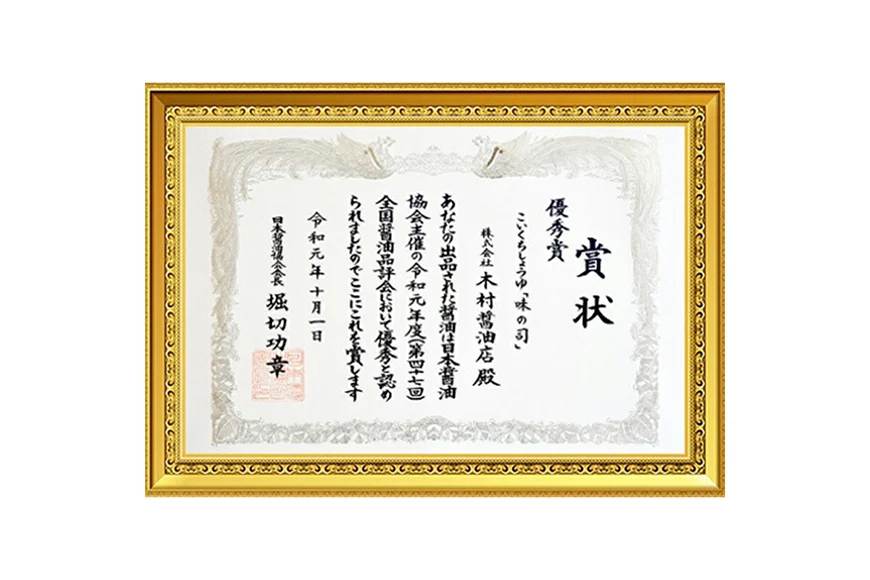 賞状
優秀賞
こいくちしょうゆ「味の司」
株式会社 木村醤油店 殿
あなたの出品された醤油は日本醤油
協会主催の令和元年度(第四十七回)
全国醤油品評会において優秀と認め
られましたのでここにこれを賞します
令和元年十月一日
日本醤油協会会長 堀切功章